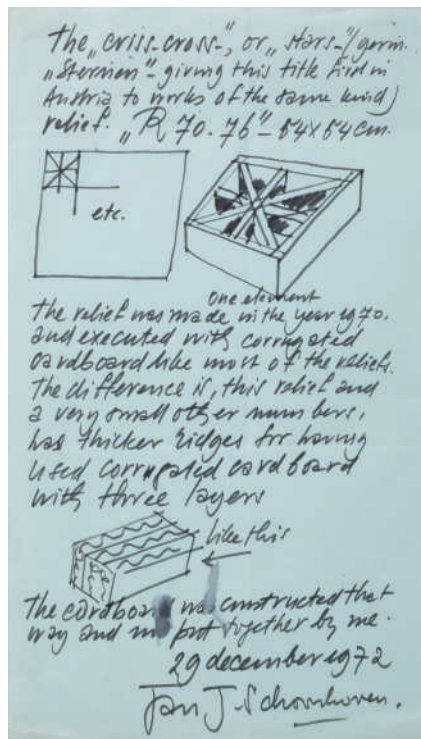 The „criss-cross-", or „stars-" (germ.
„Sternen"- giving this title first in
Austria to works of the same kind)
relief. „R 70-76"- 54x54cm.
etc.
One element
The relief was made in the year 1970.
and executed with corrugated
cardboard like most of the reliefs.
The difference is, this relief and
a very small other numbers,
has thicker ridges for having
used corrugated cardboard
with three layers
like this
The cardboard was constructed that
way and put together by me.
29 december 1972
Jan J. Schoonhoven.